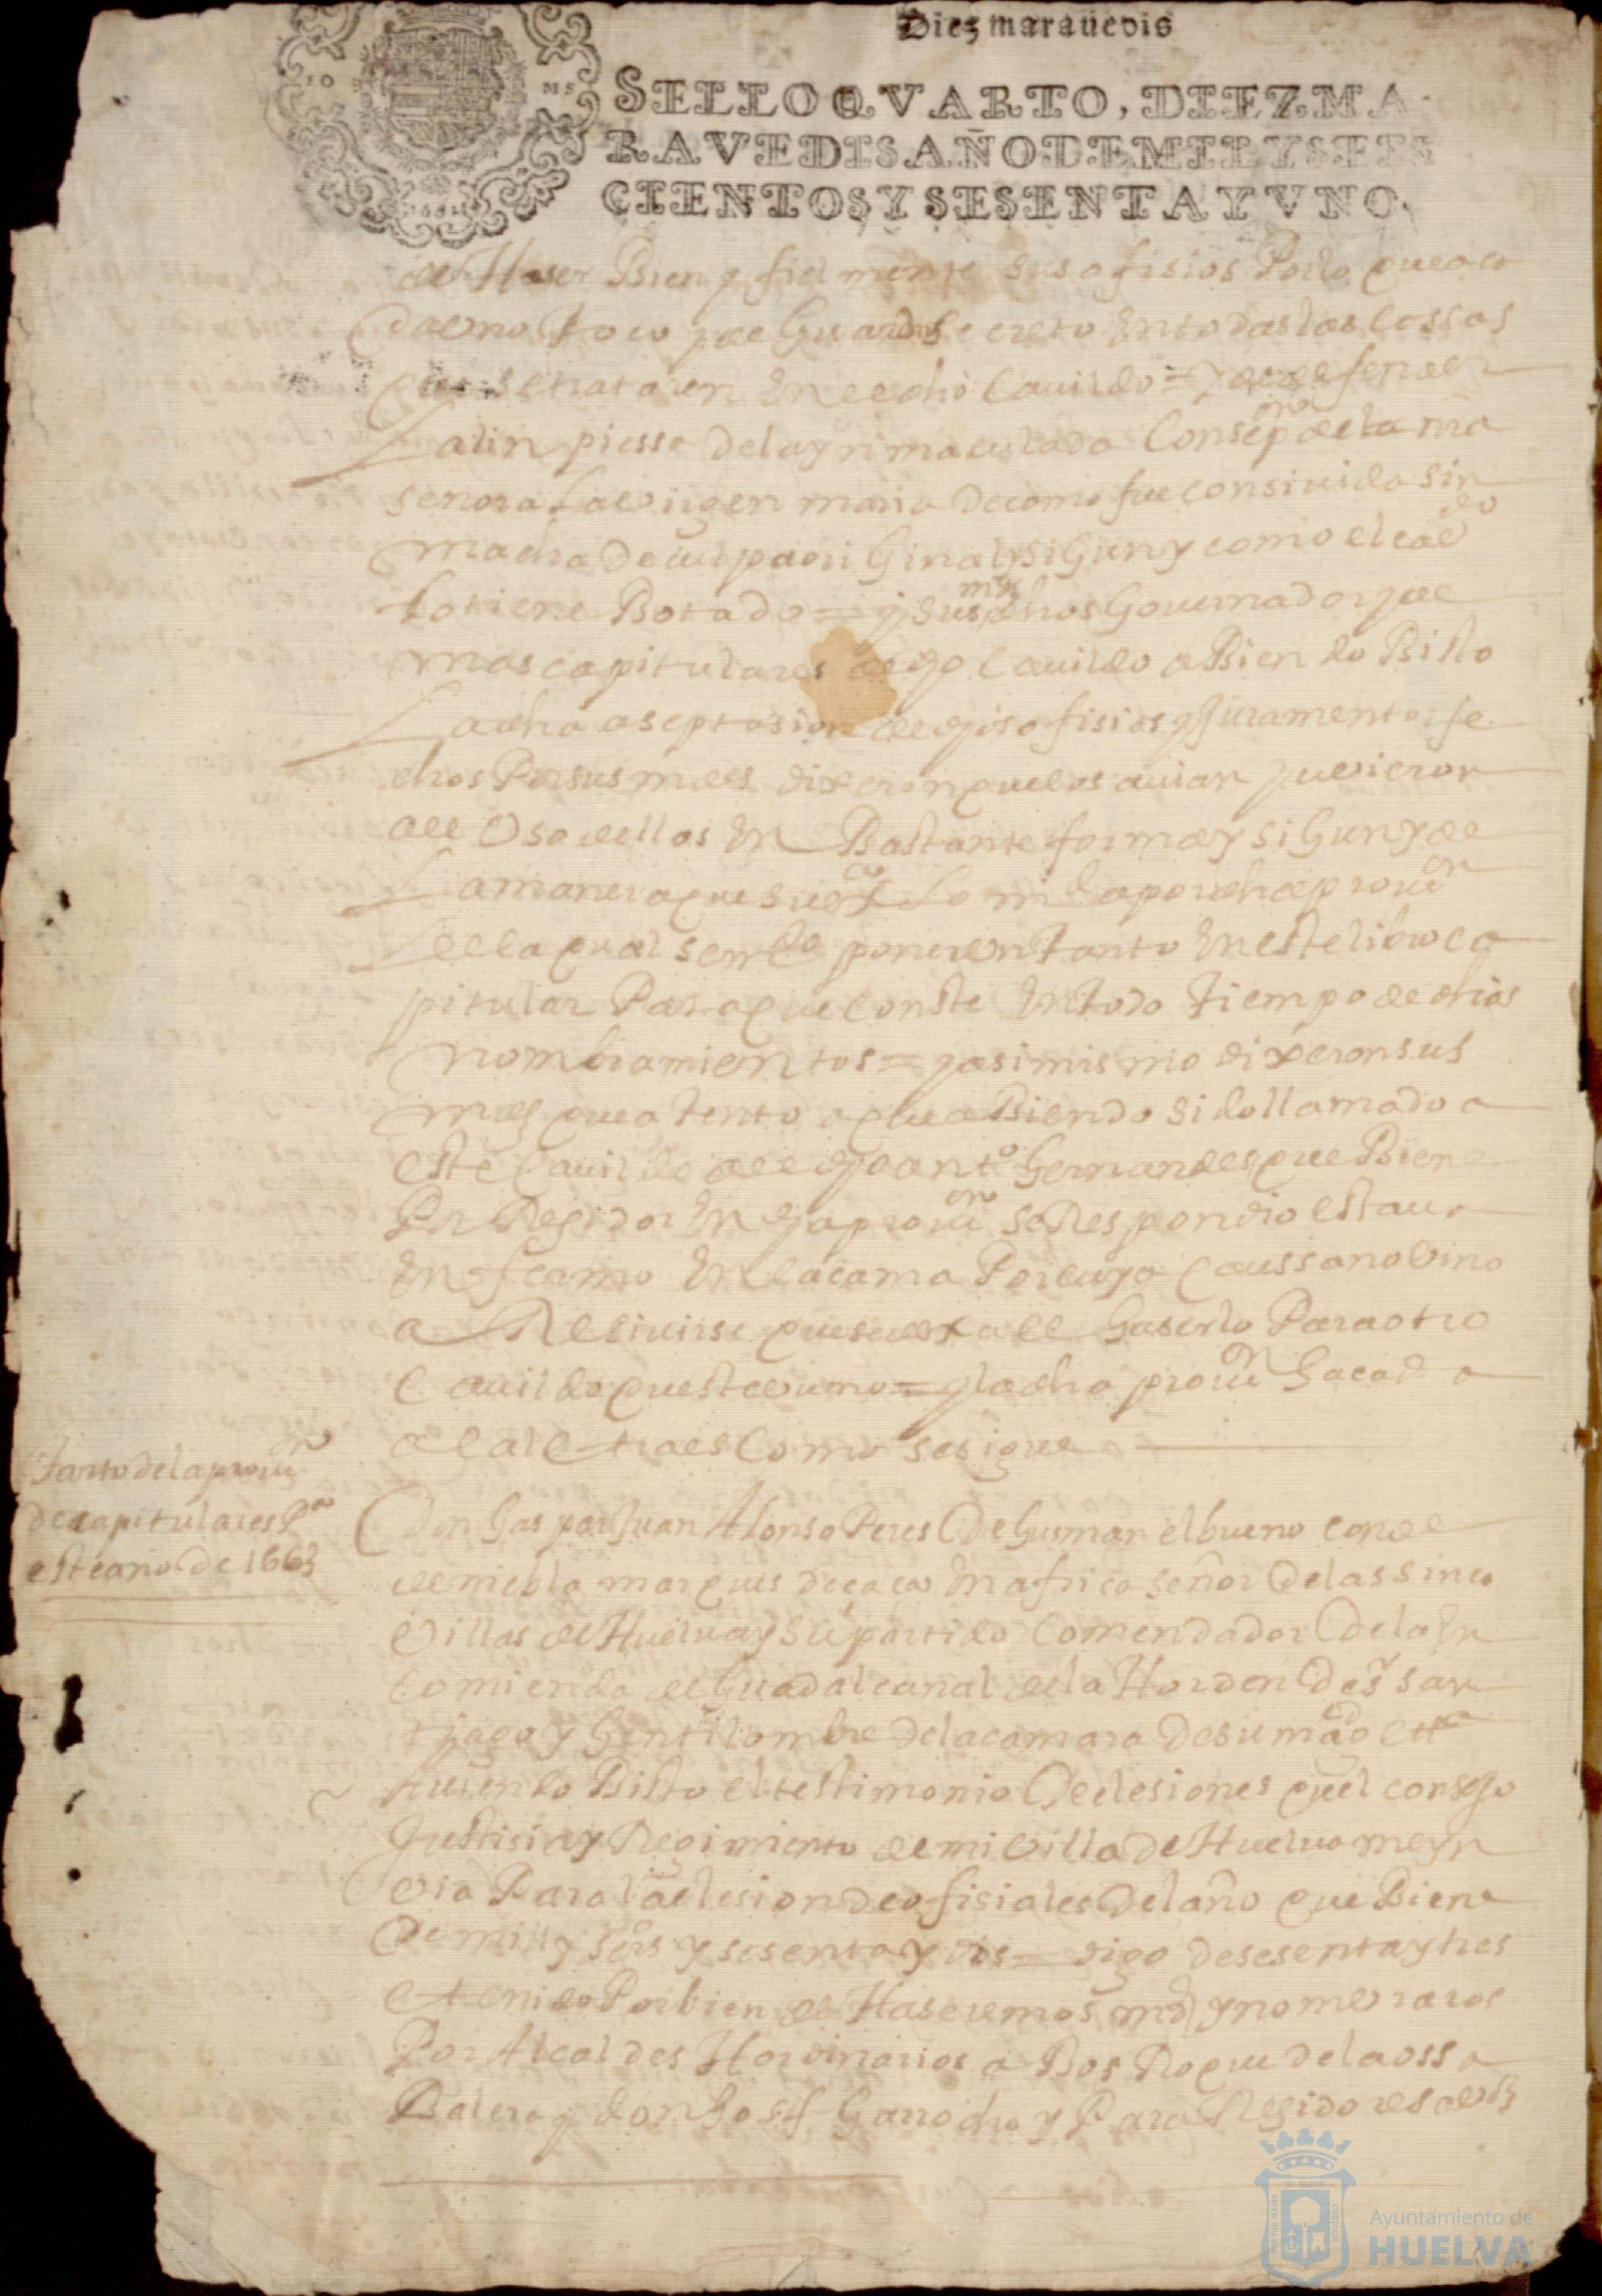 Diez maravedis
SELLO QVARTO, DIEZ MA
RAVEDIS AÑO DE MIL Y SEIS
CIENTOS Y SESENTA Y VNO.
de Haser Bien y fiel mente sus ofisios Por lo que a ca
da uno toco y de Guardar secreto En todas las Cossas
que se trataren En el dho Cavildo = y de defender
La lin piesse de la ynmaculada Consepon de la nra
señora La Virgen maria de como fue consivida sin
mancha de culpa ori Ginal y siGun y como el cavdo
lo tiene Botado = y sus mds dhos Governador y de
mas capitulares de dho Cavildo aBiendo Bisto
La dha aseptasion de dhos ofisios y Juramentos fe
chos Por sus mdes dixeron que los avian y uvieron
al Uso dellos En Bastante forma y siGun y de
La manera que su exca lo mda por dha provion
de la qual se mdo poner un tanto En este libro ca
pitular Para que Conste En todo tiempo de dhos
nombramientos = y asimismo dixeron sus
mdes que atento a que aBiendo sido llamado a
este Cavildo al dho anto Hernandes que Biene
Por Regidor En dha provion se Respondio estava
En fermo En la cama Por cuya Caussa no Vino
a Resivirse que se dexa el Haserlo Para otro
Cavildo questee vueno = y la dha provion Sacada
a la letra es Como se sigue
tanto de la provion
de capitulares Pa
este año de 1663
Don Gaspar Juan Alonso Peres de Gusman el bueno conde
de niebla marques de caçaça En africa señor de las sinco
Villas de Huelva y su partido Comendador de la En
Comienda de Guadalcanal de la Horden de sr san
tiago y Gentilombre de la camara de su magd etta
Aviendo Bisto el testimonio de elesiones quel consejo
Justisia y Regimiento de mi Villa de Huelva me yn
via Para la elesion de ofisiales del año que Biene
de mill y seis y sesenta y dos = digo de sesenta y tres
e tenido Por bien de Haseros md y nombraros
Por Alcaldes Hordinarios a Bos Roque de la ossa
Balera y don Josef Garrocho y Para Regidores a vos
Ayuntamiento de
HUELVA